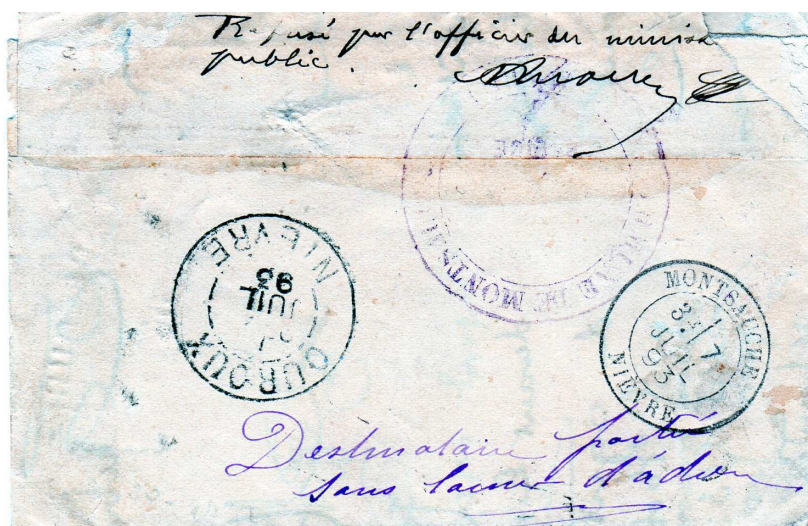 Refusé par l'officier du minis
public.
MAIRIE DE MONTSAUCHE
OUROUX
NIEVRE
JUIL
93
MONTSAUCHE
7
JUIL
93
NIÈVRE
Destinataire parti
sans laisser d'adres